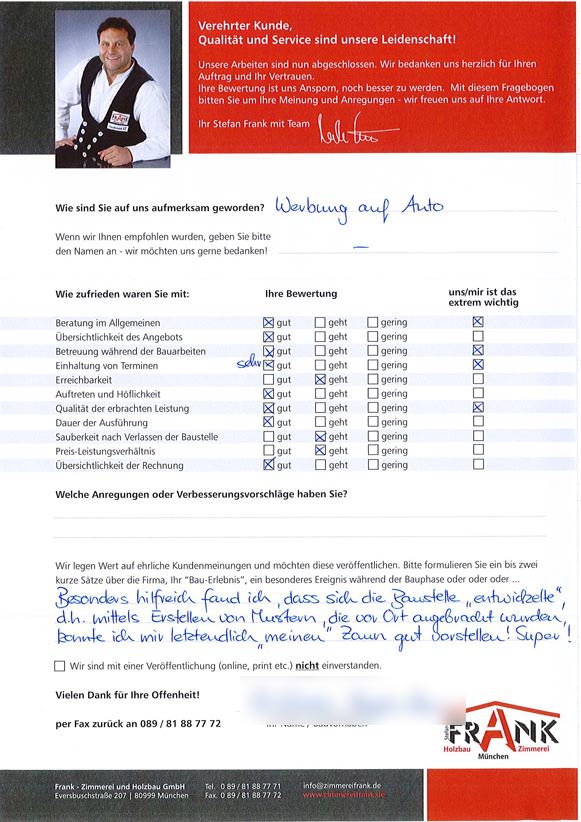 Verehrter Kunde,
Qualität und Service sind unsere Leidenschaft!
Unsere Arbeiten sind nun abgeschlossen. Wir bedanken uns herzlich für Ihren
Auftrag und Ihr Vertrauen.
Ihre Bewertung ist uns Ansporn, noch besser zu werden. Mit diesem Fragebogen
bitten Sie um Ihre Meinung und Anregungen - wir freuen uns auf Ihre Antwort.
Ihr Stefan Frank mit Team
Wie sind Sie auf uns aufmerksam geworden? Werbung auf Auto
Wenn wir Ihnen empfohlen wurden, geben Sie bitte
den Namen an - wir möchten uns gerne bedanken! —
Wie zufrieden waren Sie mit: Ihre Bewertung uns/mir ist das
extrem wichtig
Beratung im Allgemeinen ☒ gut ☐ geht ☐ gering ☒
Übersichtlichkeit des Angebots ☒ gut ☐ geht ☐ gering ☐
Betreuung während der Bauarbeiten ☒ gut ☐ geht ☐ gering ☒
Einhaltung von Terminen sehr ☒ gut ☐ geht ☐ gering ☒
Erreichbarkeit ☐ gut ☒ geht ☐ gering ☐
Auftreten und Höflichkeit ☒ gut ☐ geht ☐ gering ☐
Qualität der erbrachten Leistung ☒ gut ☐ geht ☐ gering ☒
Dauer der Ausführung ☒ gut ☐ geht ☐ gering ☐
Sauberkeit nach Verlassen der Baustelle ☐ gut ☒ geht ☐ gering ☐
Preis-Leistungsverhältnis ☐ gut ☒ geht ☐ gering ☐
Übersichtlichkeit der Rechnung ☒ gut ☐ geht ☐ gering ☐
Welche Anregungen oder Verbesserungsvorschläge haben Sie?
Wir legen Wert auf ehrliche Kundenmeinungen und möchten diese veröffentlichen. Bitte formulieren Sie ein bis zwei
kurze Sätze über die Firma, Ihr "Bau-Erlebnis", ein besonderes Ereignis während der Bauphase oder oder oder ...
Besonders hilfreich fand ich, dass sich die Baustelle „entwickelte",
d.h. mittels Erstellen von Mustern, die vor Ort angebracht wurden,
konnte ich mir letztendlich „meinen" Zaun gut vorstellen! Super!
☐ Wir sind mit einer Veröffentlichung (online, print etc.) nicht einverstanden.
Vielen Dank für Ihre Offenheit!
per Fax zurück an 089 / 81 88 77 72
Stefan
FRANK
Holzbau Zimmerei
München
Frank - Zimmerei und Holzbau GmbH Tel. 0 89 / 81 88 77 71 info@zimmereifrank.de
Eversbuschstraße 207 | 80999 München Fax. 0 89 / 81 88 77 72 www.zimmereifrank.de